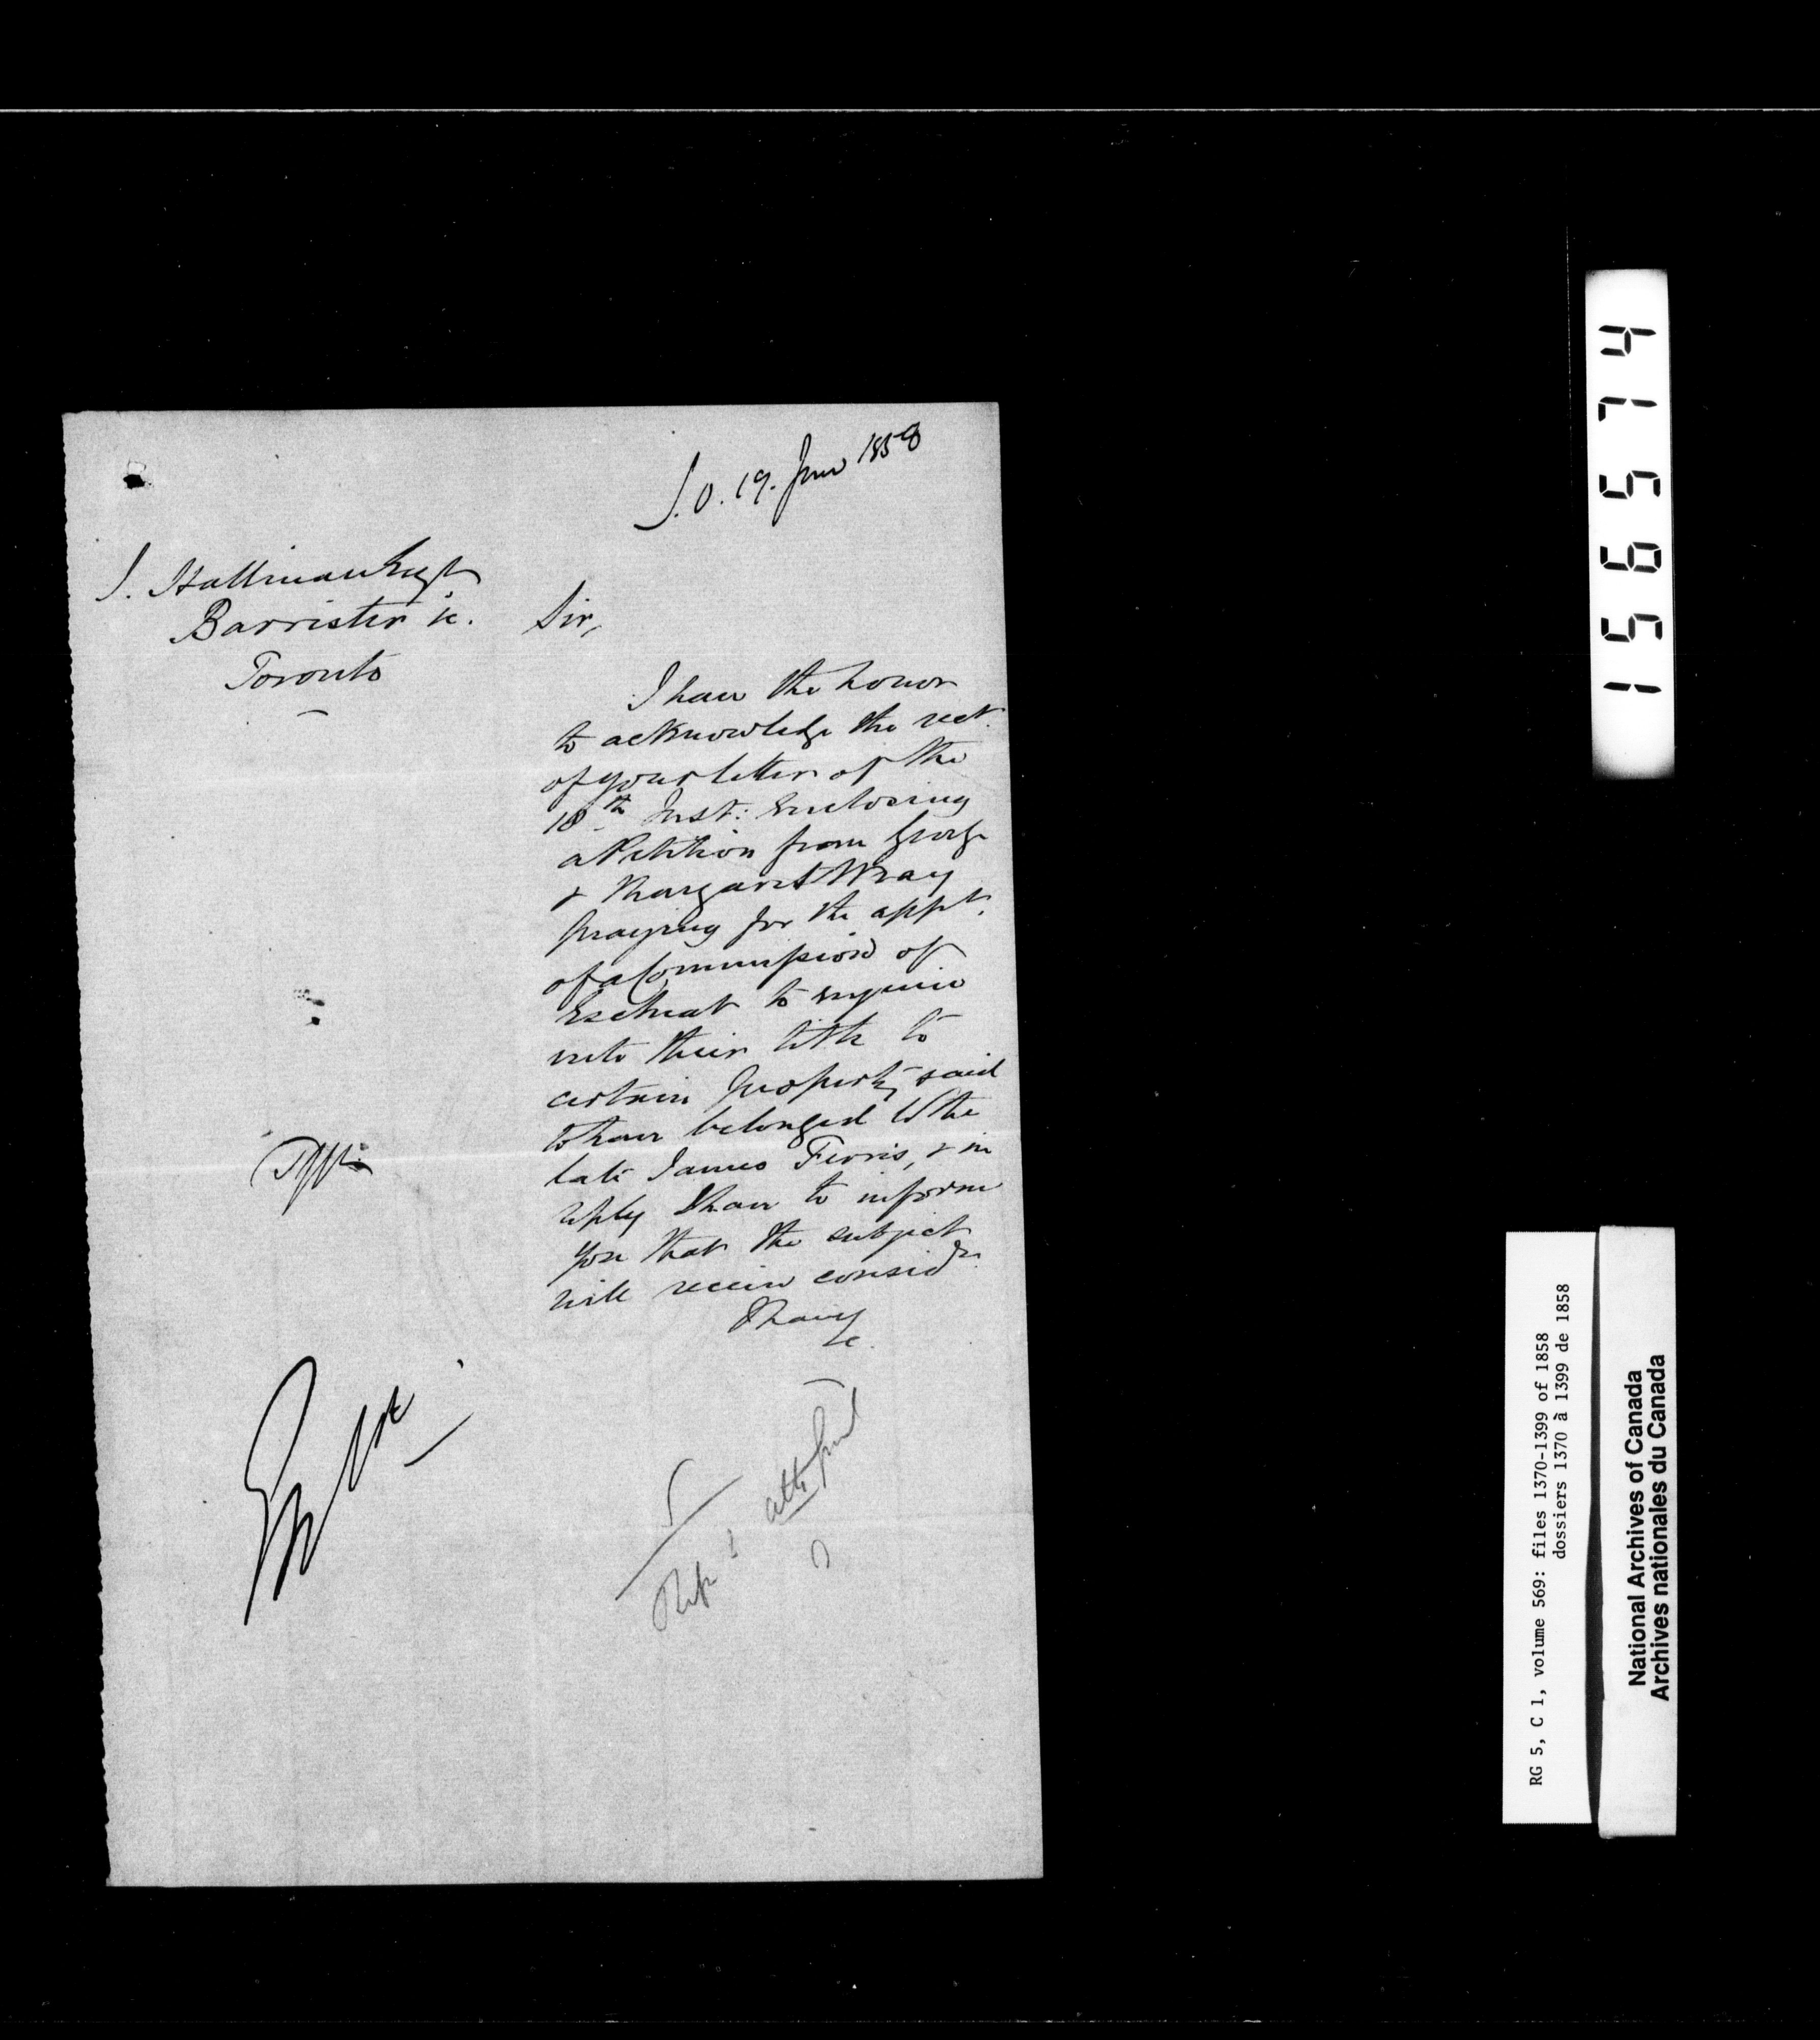 S.O. 19. June 1858
J. Hallinan Esqr
Barrister &c.
Toronto
Sir,
I have the honor
to acknowledge the rect.
of your letter of the
18th Inst: Enclosing
a Petition from George
& Margaret Wray
praying for the appt.
of a Commission of
Escheat to enquire
into their title to
certain property said
to have belonged to the
late James Ferris, & in
reply I have to inform
you that the subject
will receive consid
I have
&c.
15657 4
RG 5, C 1, volume 569: files 1370-1399 of 1858
dossiers 1370 à 1399 de 1858
National Archives of Canada
Archives nationales du Canada